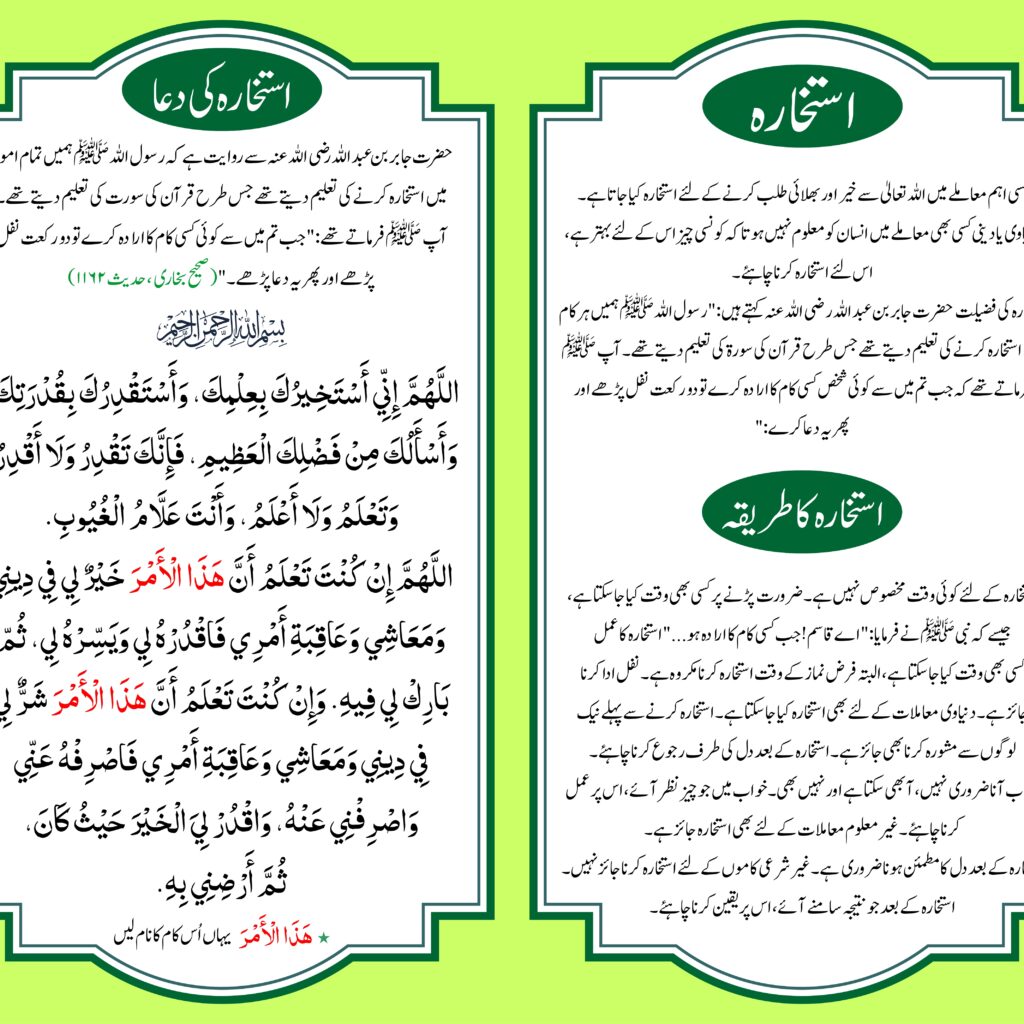 استخارہ
سی اہم معاملے میں اللہ تعالیٰ سے خیر اور بھلائی طلب کرنے کے لئے استخارہ کیا جاتا ہے۔
یاوی یا دینی کسی بھی معاملے میں انسان کو معلوم نہیں ہوتا کہ کونسی چیز اس کے لئے بہتر ہے،
اس لئے استخارہ کرنا چاہئے۔
رہ کی فضیلت حضرت جابر بن عبد اللہ رضی اللہ عنہ کہتے ہیں: "رسول اللہ ﷺ ہمیں ہر کام
استخارہ کرنے کی تعلیم دیتے تھے جس طرح قرآن کی سورۃ کی تعلیم دیتے تھے۔ آپ ﷺ
رماتے تھے کہ جب تم میں سے کوئی شخص کسی کام کا ارادہ کرے تو دو رکعت نفل پڑھے اور
پھر یہ دعا کرے:"
استخارہ کا طریقہ
خارہ کے لئے کوئی وقت مخصوص نہیں ہے۔ ضرورت پڑنے پر کسی بھی وقت کیا جا سکتا ہے،
جیسے کہ نبی ﷺ نے فرمایا: "اے قاسم! جب کسی کام کا ارادہ ہو..." استخارہ کا عمل
کسی بھی وقت کیا جا سکتا ہے، البتہ فرض نماز کے وقت استخارہ کرنا مکروہ ہے۔ نفل ادا کرنا
جائز ہے۔ دنیاوی معاملات کے لئے بھی استخارہ کیا جا سکتا ہے۔ استخارہ کرنے سے پہلے نیک
لوگوں سے مشورہ کرنا بھی جائز ہے۔ استخارہ کے بعد دل کی طرف رجوع کرنا چاہئے۔
ب آنا ضروری نہیں، آ بھی سکتا ہے اور نہیں بھی۔ خواب میں جو چیز نظر آئے، اس پر عمل
کرنا چاہئے۔ غیر معلوم معاملات کے لئے بھی استخارہ جائز ہے۔
ارہ کے بعد دل کا مطمئن ہونا ضروری ہے۔ غیر شرعی کاموں کے لئے استخارہ کرنا جائز نہیں۔
استخارہ کے بعد جو نتیجہ سامنے آئے، اس پر یقین کرنا چاہئے۔
استخارہ کی دعا
حضرت جابر بن عبد اللہ رضی اللہ عنہ سے روایت ہے کہ رسول اللہ ﷺ ہمیں تمام امو
میں استخارہ کرنے کی تعلیم دیتے تھے جس طرح قرآن کی سورت کی تعلیم دیتے تھے۔
آپ ﷺ فرماتے تھے: "جب تم میں سے کوئی کسی کام کا ارادہ کرے تو دو رکعت نفل
پڑھے اور پھر یہ دعا پڑھے۔" (صحیح بخاری، حدیث ۱۱۶۲)
بسم الله الرحمن الرحيم
اللَّهُمَّ إِنِّي أَسْتَخِيرُكَ بِعِلْمِكَ، وَأَسْتَقْدِرُكَ بِقُدْرَتِكَ
وَأَسْأَلُكَ مِنْ فَضْلِكَ الْعَظِيمِ، فَإِنَّكَ تَقْدِرُ وَلَا أَقْدِرُ
وَتَعْلَمُ وَلَا أَعْلَمُ، وَأَنْتَ عَلَّامُ الْغُيُوبِ.
اللَّهُمَّ إِنْ كُنْتَ تَعْلَمُ أَنَّ هَذَا الْأَمْرَ خَيْرٌ لِي فِي دِينِي
وَمَعَاشِي وَعَاقِبَةِ أَمْرِي فَاقْدُرْهُ لِي وَيَسِّرْهُ لِي، ثُمَّ
بَارِكْ لِي فِيهِ. وَإِنْ كُنْتَ تَعْلَمُ أَنَّ هَذَا الْأَمْرَ شَرٌّ لِي
فِي دِينِي وَمَعَاشِي وَعَاقِبَةِ أَمْرِي فَاصْرِفْهُ عَنِّي
وَاصْرِفْنِي عَنْهُ، وَاقْدُرْ لِيَ الْخَيْرَ حَيْثُ كَانَ،
ثُمَّ أَرْضِنِي بِهِ.
★ هَذَا الْأَمْرَ یہاں اُس کام کا نام لیں